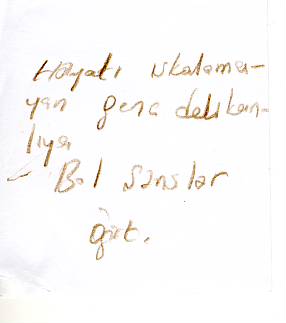 Hayatı ıskalama-
yan genç delikan-
lıya
Bol Şanslar